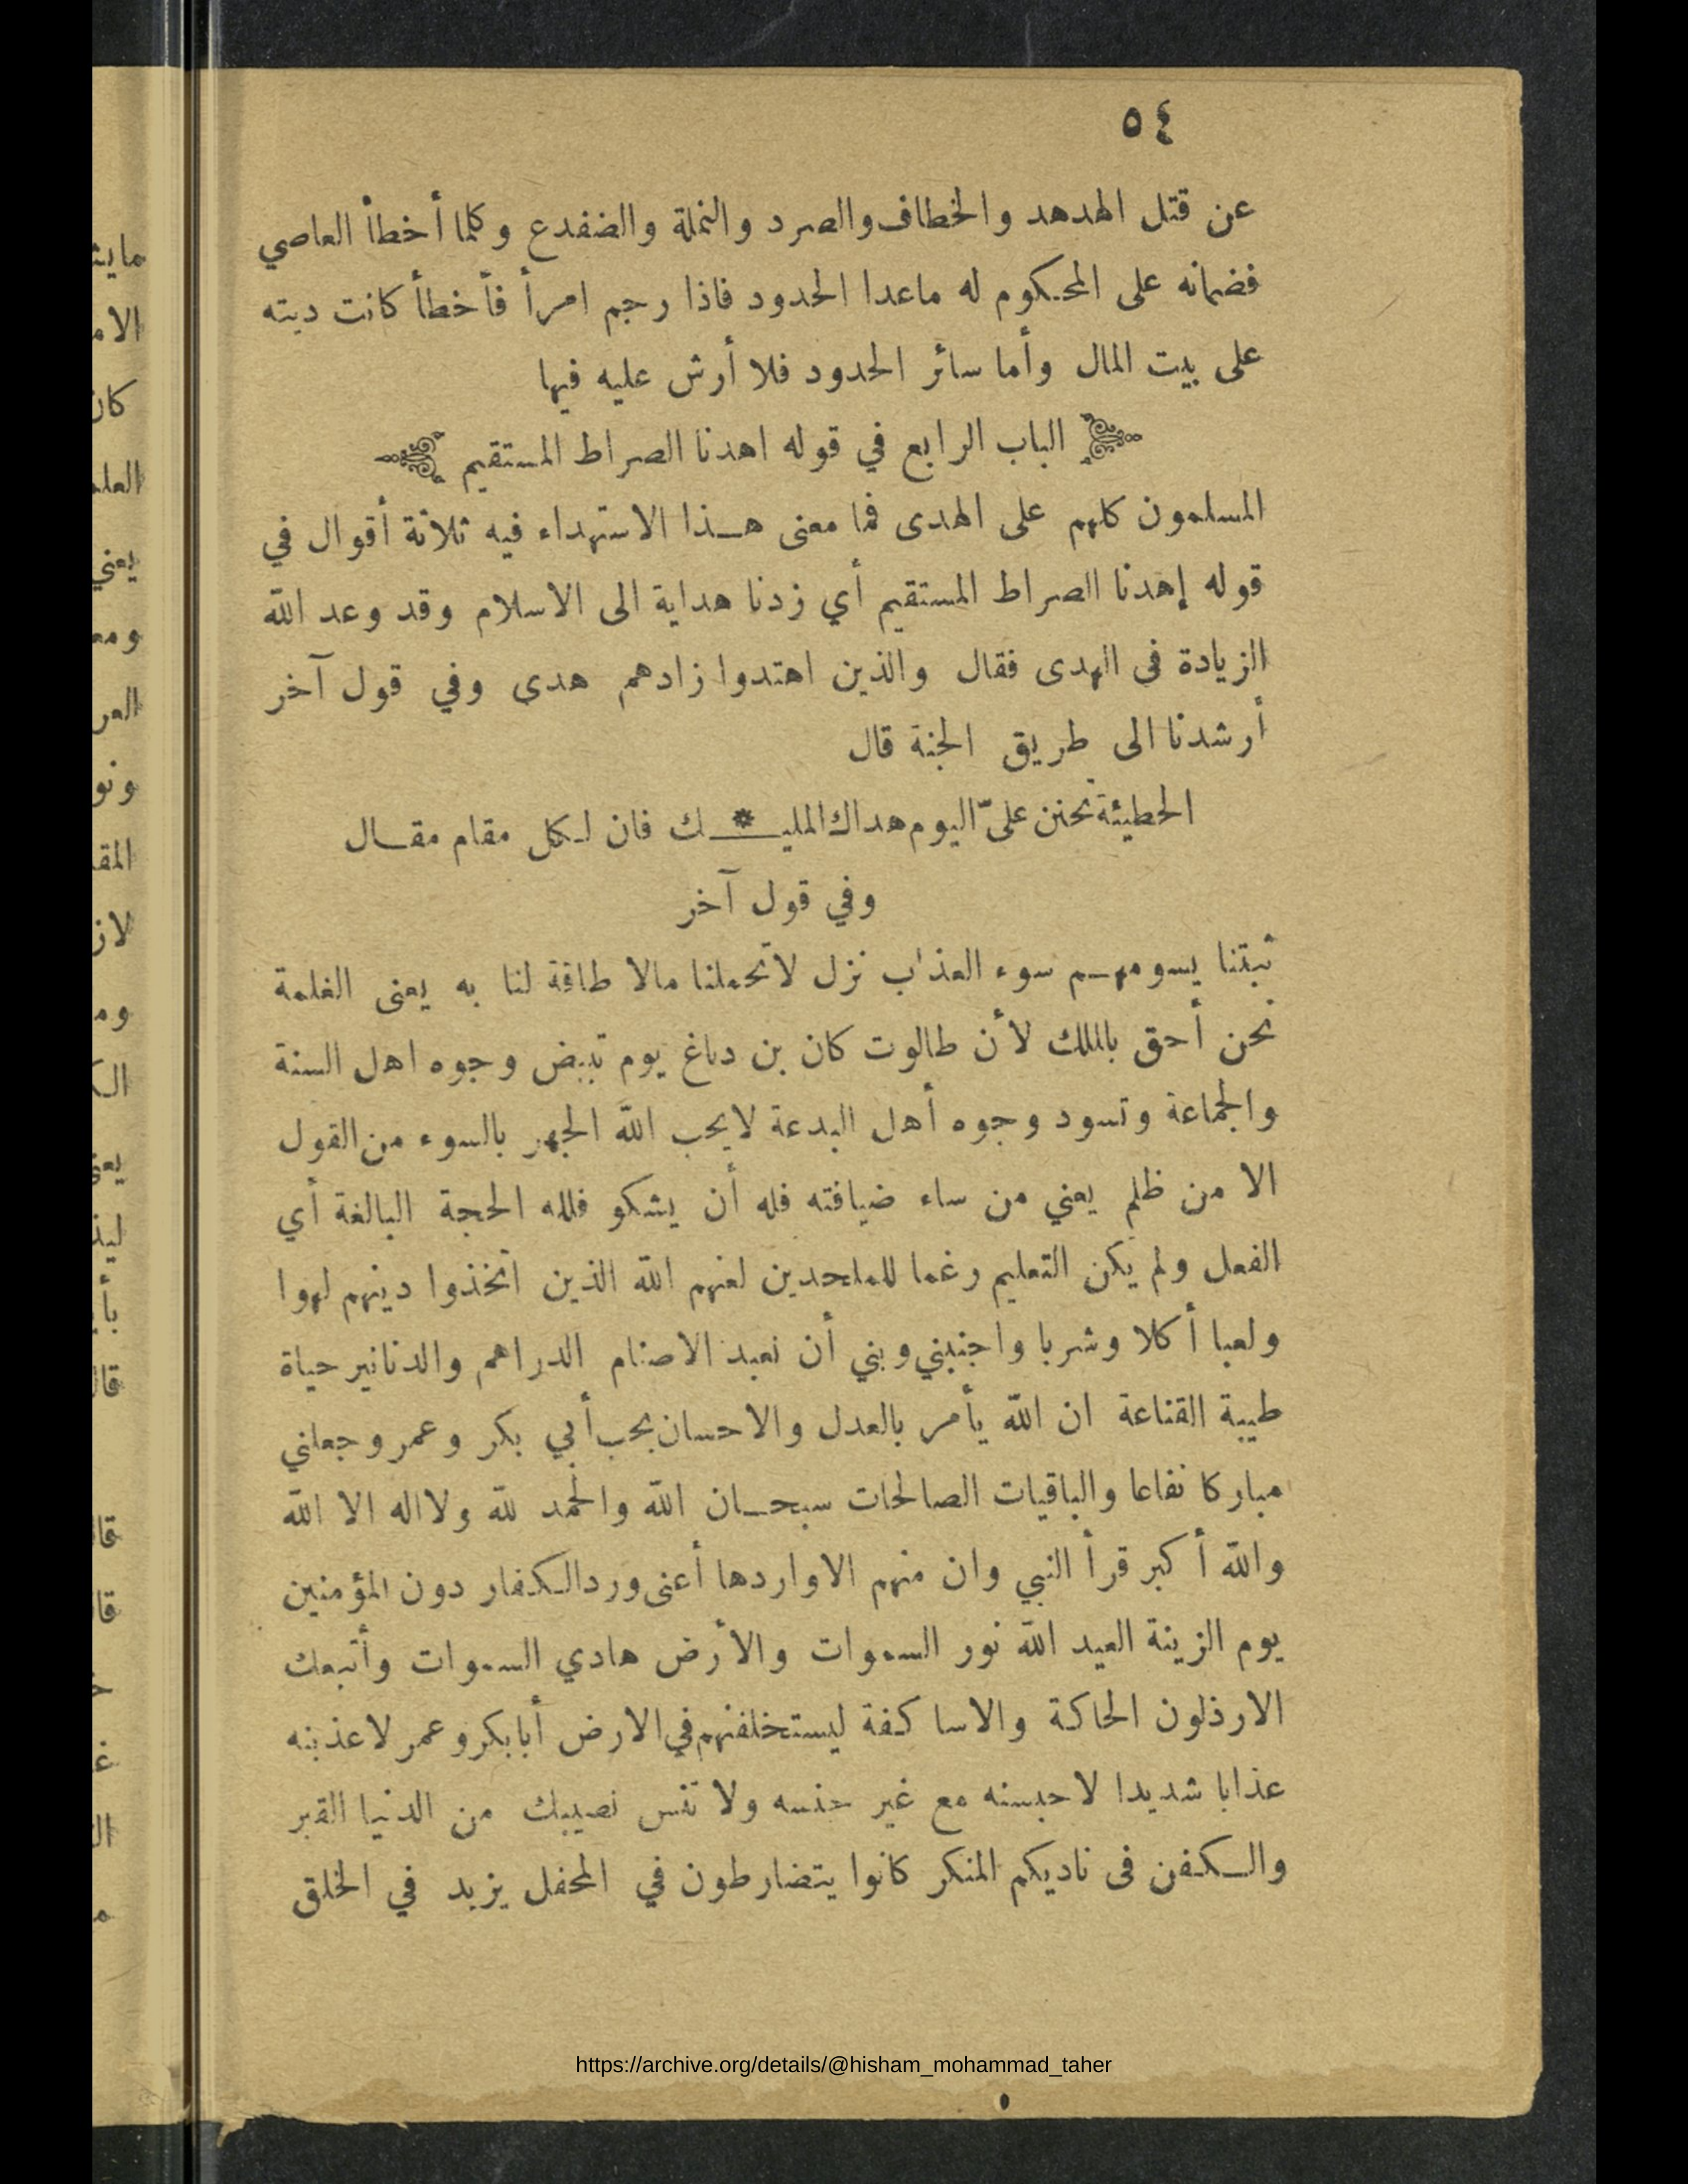 ٥٤
عن قتل الهدهد والخطاف والصرد والنملة والضفدع وكلما أخطأ العاصي
فضمانه على المحكوم له ماعدا الحدود فاذا رجم امرأ فأخطأ كانت ديته
على بيت المال وأما سائر الحدود فلا أرش عليه فيها
الباب الرابع في قوله اهدنا الصراط المستقيم
المسلمون كلهم على الهدى فما معنى هذا الاستهداء فيه ثلاثة أقوال في
قوله إهدنا الصراط المستقيم أي زدنا هداية الى الاسلام وقد وعد الله
الزيادة فى الهدى فقال والذين اهتدوا زادهم هدى وفي قول آخر
أرشدنا الى طريق الجنة قال
الحطيئة تحنن علىّ اليوم هداك المليـ * ـك فان لكل مقام مقال
وفي قول آخر
ثبتنا يسومهم سوء العذاب نزل لاتحملنا مالا طاقة لنا به يعنى الغلمة
نحن أحق بالملك لأن طالوت كان بن دباغ يوم تبيض وجوه اهل السنة
والجماعة وتسود وجوه أهل البدعة لايحب الله الجهر بالسوء من القول
الا من ظلم يعني من ساء ضيافته فله أن يشكو فلله الحجة البالغة أي
الفعل ولم يكن التعليم رغما للملحدين لعنهم الله الذين اتخذوا دينهم لهوا
ولعبا أكلا وشربا واجنبني وبني أن نعبد الاصنام الدراهم والدنانير حياة
طيبة القناعة ان الله يأمر بالعدل والاحسان بحب أبي بكر وعمر وجعلني
مباركا نفاعا والباقيات الصالحات سبحان الله والحمد لله ولااله الا الله
والله أكبر قرأ النبي وان منهم الاواردها أعنى ورد الكفار دون المؤمنين
يوم الزينة العيد الله نور السموات والأرض هادي السموات وأتبعك
الارذلون الحاكة والاساكفة ليستخلفنهم في الارض أبابكر وعمر لاعذبنه
عذابا شديدا لاحبسنه مع غير جنسه ولا تنس نصيبك من الدنيا القبر
والكفن فى ناديكم المنكر كانوا يتضارطون في المحفل يزيد في الخلق
https://archive.org/details/@hisham_mohammad_taher